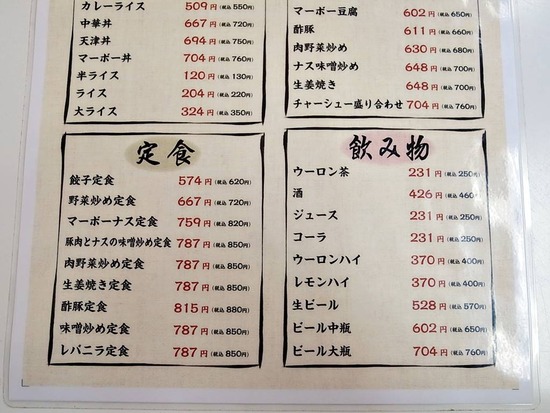 カレーライス 509円(税込 550円)
中華丼 667円(税込 720円)
天津丼 694円(税込 750円)
マーボー丼 704円(税込 760円)
半ライス 120円(税込 130円)
ライス 204円(税込 220円)
大ライス 324円(税込 350円)
マーボー豆腐 602円(税込 650円)
酢豚 611円(税込 660円)
肉野菜炒め 630円(税込 680円)
ナス味噌炒め 648円(税込 700円)
生姜焼き 648円(税込 700円)
チャーシュー盛り合わせ 704円(税込 760円)
定食
餃子定食 574円(税込 620円)
野菜炒め定食 667円(税込 720円)
マーボーナス定食 759円(税込 820円)
豚肉とナスの味噌炒め定食 787円(税込 850円)
肉野菜炒め定食 787円(税込 850円)
生姜焼き定食 787円(税込 850円)
酢豚定食 815円(税込 880円)
味噌炒め定食 787円(税込 850円)
レバニラ定食 787円(税込 850円)
飲み物
ウーロン茶 231円(税込 250円)
酒 426円(税込 460円)
ジュース 231円(税込 250円)
コーラ 231円(税込 250円)
ウーロンハイ 370円(税込 400円)
レモンハイ 370円(税込 400円)
生ビール 528円(税込 570円)
ビール中瓶 602円(税込 650円)
ビール大瓶 704円(税込 760円)